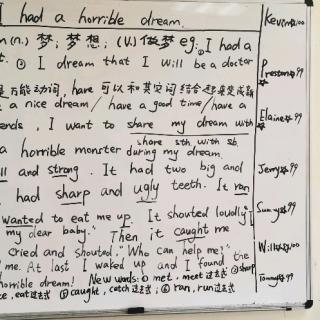 I had a horrible dream.
m (n.) 梦; 梦想; (v.) 做梦 eg: ① I had a
② I dream that I will be a doctor
万能动词, have 可以和其它词结合起来变成新
a nice dream / have a good time / have a
ends, I want to share my dream with
share sth. with sb.
a horrible monster during my dream.
ll and strong. It had two big and
had sharp and ugly teeth. It ran
wanted to eat me up. It shouted loudly,
my dear baby." Then it caught me
cried and shouted, "Who can help me?"
me. At last I waked up and I found the
horrible dream! New words: ① met, meet过去式 ② sharp
eat过去式 ⑤ caught, catch过去式 ⑥ ran, run过去式
Kevin 100
Preston 99
Elaine 99
Jerry 99
Sunny 99
Will 100
Tommy 99